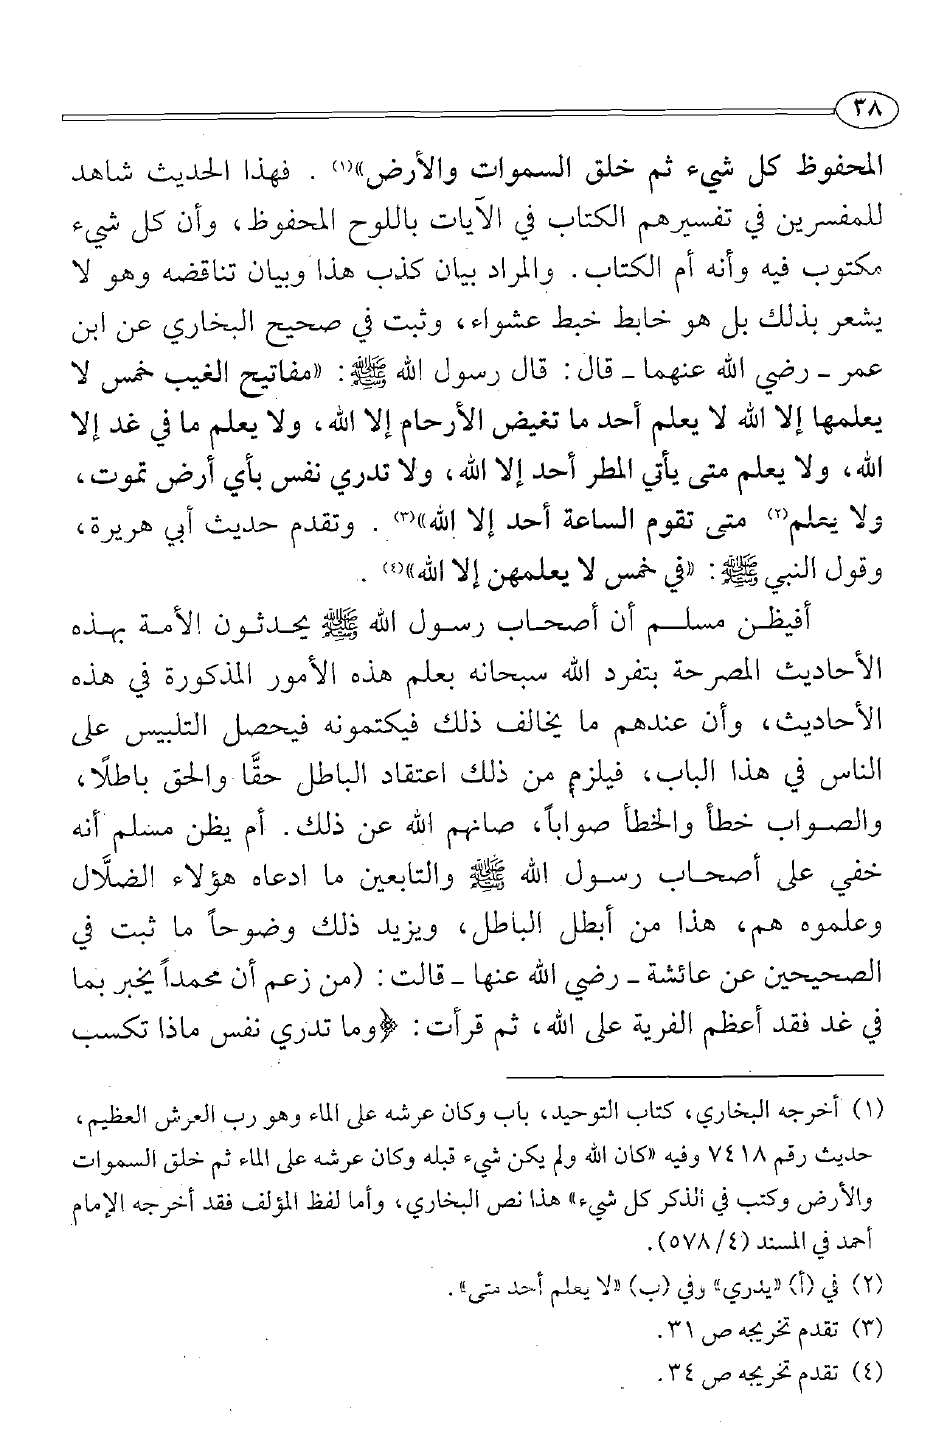 ٣٨
المحفوظ كل شيء ثم خلق السموات والأرض»(١) . فهذا الحديث شاهد
للمفسرين في تفسيرهم الكتاب في الآيات باللوح المحفوظ، وأن كل شيء
مكتوب فيه وأنه أم الكتاب. والمراد بيان كذب هذا وبيان تناقضه وهو لا
يشعر بذلك بل هو خابط خبط عشواء، وثبت في صحيح البخاري عن ابن
عمر ـ رضي الله عنهما ـ قال: قال رسول الله ﷺ: «مفاتيح الغيب خمس لا
يعلمها إلا الله لا يعلم أحد ما تغيض الأرحام إلا الله، ولا يعلم ما في غد إلا
الله، ولا يعلم متى يأتي المطر أحد إلا الله، ولا تدري نفس بأي أرض تموت،
ولا يعلم(٢) متى تقوم الساعة أحد إلا الله»(٣) . وتقدم حديث أبي هريرة،
وقول النبي ﷺ: «في خمس لا يعلمهن إلا الله»(٤) .
أفيظن مسلم أن أصحاب رسول الله ﷺ يحدثون الأمة بهذه
الأحاديث المصرحة بتفرد الله سبحانه بعلم هذه الأمور المذكورة في هذه
الأحاديث، وأن عندهم ما يخالف ذلك فيكتمونه فيحصل التلبيس على
الناس في هذا الباب، فيلزم من ذلك اعتقاد الباطل حقًّا والحق باطلًا،
والصواب خطأ والخطأ صواباً، صانهم الله عن ذلك. أم يظن مسلم أنه
خفي على أصحاب رسول الله ﷺ والتابعين ما ادعاه هؤلاء الضلَّال
وعلموه هم، هذا من أبطل الباطل، ويزيد ذلك وضوحاً ما ثبت في
الصحيحين عن عائشة ـ رضي الله عنها ـ قالت: (من زعم أن محمداً يخبر بما
في غد فقد أعظم الفرية على الله، ثم قرأت: ﴿وما تدري نفس ماذا تكسب
(١) أخرجه البخاري، كتاب التوحيد، باب وكان عرشه على الماء وهو رب العرش العظيم،
حديث رقم ٧٤١٨ وفيه «كان الله ولم يكن شيء قبله وكان عرشه على الماء ثم خلق السموات
والأرض وكتب في الذكر كل شيء» هذا نص البخاري، وأما لفظ المؤلف فقد أخرجه الإمام
أحمد في المسند (٤/ ٥٧٨).
(٢) في (أ) «يدري» وفي (ب) «لا يعلم أحد متى».
(٣) تقدم تخريجه ص ٣١.
(٤) تقدم تخريجه ص ٣٤.